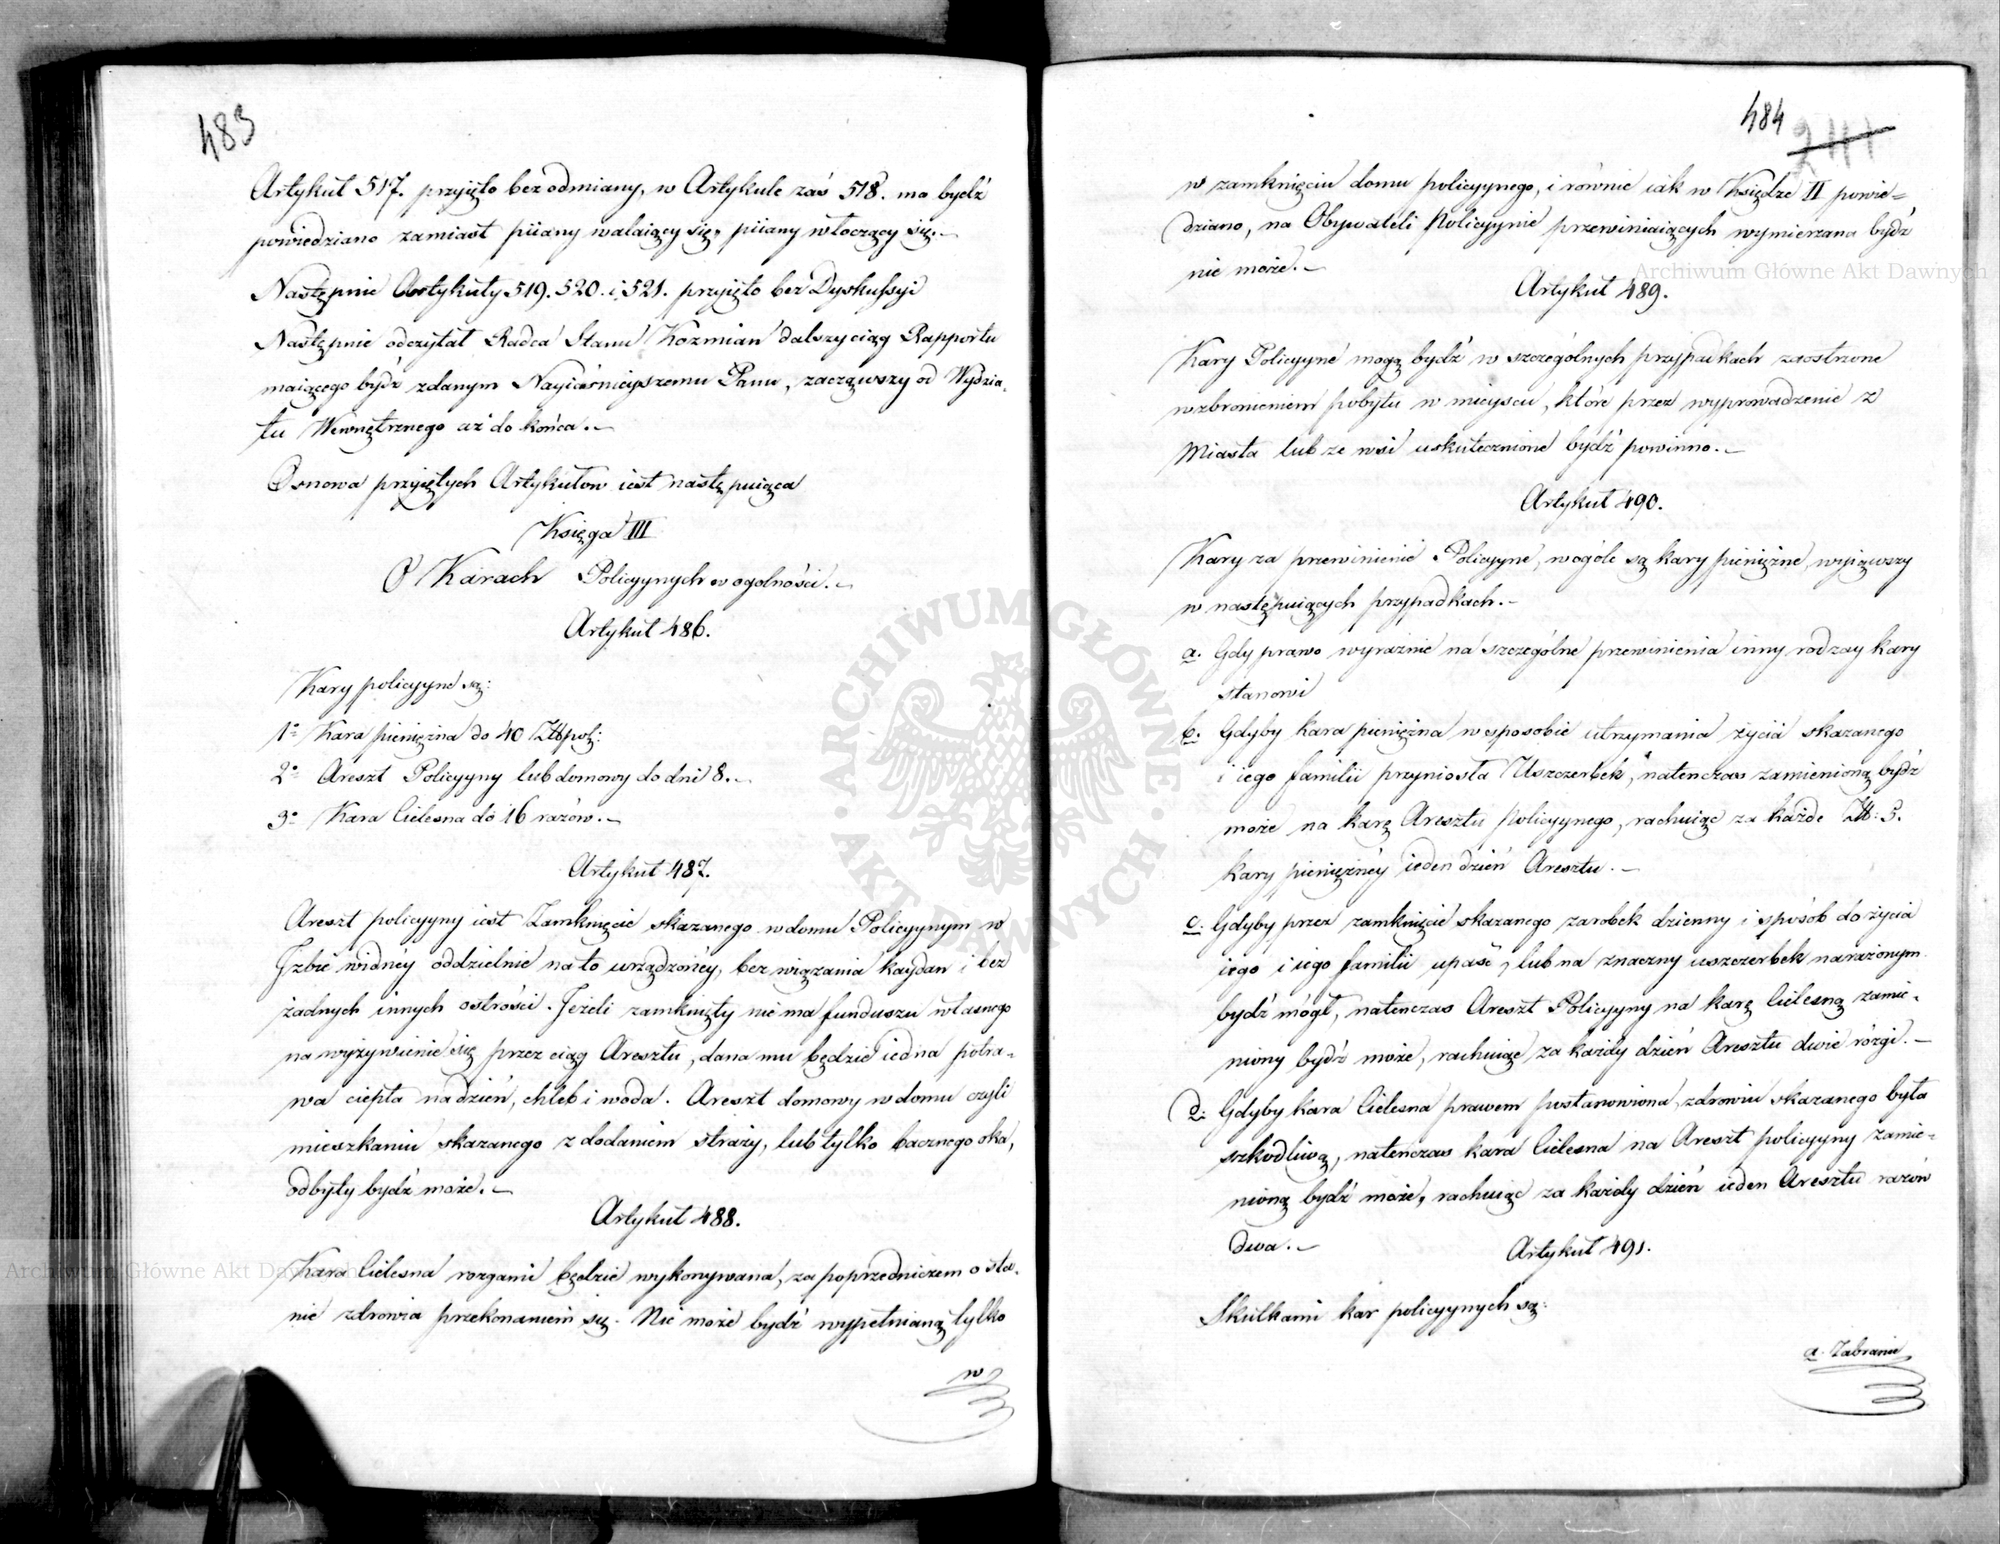 483
Artykuł 517. przyięto bez odmiany, w Artykule zaś 518. ma bydź
powiedziano zamiast piiany walaiący się, piiany włoczący się.–
Następnie Artykuły 519. 520. i 521. przyięto bez Dyskussyi
Następnie odczytał Radca Stanu Kozmian dalszy ciąg Rapportu
maiącego bydź zdanym Nayiaśnieyszemu Panu, zacząwszy od Wydzia-
łu Wewnętrznego aż do końca.–
Osnowa przyiętych Artykułow iest następuiąca
Księga III
O Karach Policyynych w ogolności.–
Artykuł 486.
Kary policyyne są:
1o Kara pieniężna do 40 Złłpol:
2o Areszt Policyyny lub domowy do dni 8.–
3o Kara Cielesna do 16 razów.–
Artykuł 487.
Areszt policyyny iest Zamknięcie skazanego w domu Policyynym w
Izbie widnéy oddzielnie na to urządzonéy, bez wiązania kaydan i bez
żadnych innych ostrości. Jeżeli zamknięty nie ma funduszu własnego
na wyżywienie się przez ciąg Aresztu, dana mu będzie iedna potra-
wa ciepła na dzień, chleb i woda. Areszt domowy w domu czyli
mieszkaniu skazanego z dodaniem straży, lub tylko bacznego oka,
odbyty bydź może.–
Artykuł 488.
Kara Cielesna rozgami będzie wykonywana, za poprzedniczem o sta-
nie zdrowia przekonaniem się. Nie może bydź wypełnianą tylko
w
484
241
w zamknięciu domu policyynego, i równie iak w Księdze II powie-
dziano, na Obywateli Policyynie przewiniaiących wymierzana bydź
nie może.–
Artykuł 489.
Kary Policyyne mogą bydź w szczególnych przypadkach zaostrzone
wzbronieniem pobytu w mieyscu, które przez wyprowadzenie z
Miasta lub ze wsi uskutecznione bydź powinno.–
Artykuł 490.
Kary za przewinienie Policyyne, wogóle są kary pieniężne, wyiąwszy
w następuiących przypadkach.–
a. Gdy prawo wyraźnie na szczególne przewinienia inny rodzay kary
stanowi
b. Gdyby kara pieniężna w sposobie utrzymania życia skazanego
i iego familii przyniosła Uszczerbek, natenczas zamienioną bydź
może na karę Aresztu policyynego, rachuiąc za każde Złł: 5.
kary pieniężnéy ieden dzień Aresztu.–
c. Gdyby przez zamknięcie skazanego zarobek dzienny i sposób do życia
iego i iego familii upaść, lub na znaczny uszczerbek narażonym
bydź mógł, natenczas Areszt Policyyny na karę Cielesną zamie-
niony bydź może, rachuiąc za każdy dzień Aresztu dwie rózgi.–
d. Gdyby kara Cielesna prawem postanowiona, zdrowiu skazanego była
szkodliwą, natenczas kara Cielesna na Areszt policyyny zamie-
nioną bydź może, rachuiąc za każdy dzień ieden Aresztu razów
dwa.–
Artykuł 491.
Skutkami kar policyynych są:
a. Zabranie
ARCHIWUM GŁÓWNE AKT DAWNYCH
Archiwum Główne Akt Dawnych
Archiwum Główne Akt Dawnych